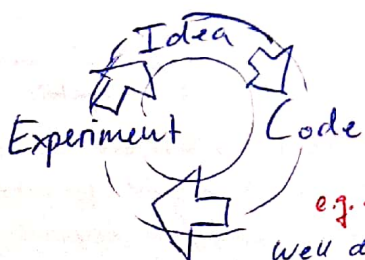 Idea
Experiment Code
e.g.
Well d